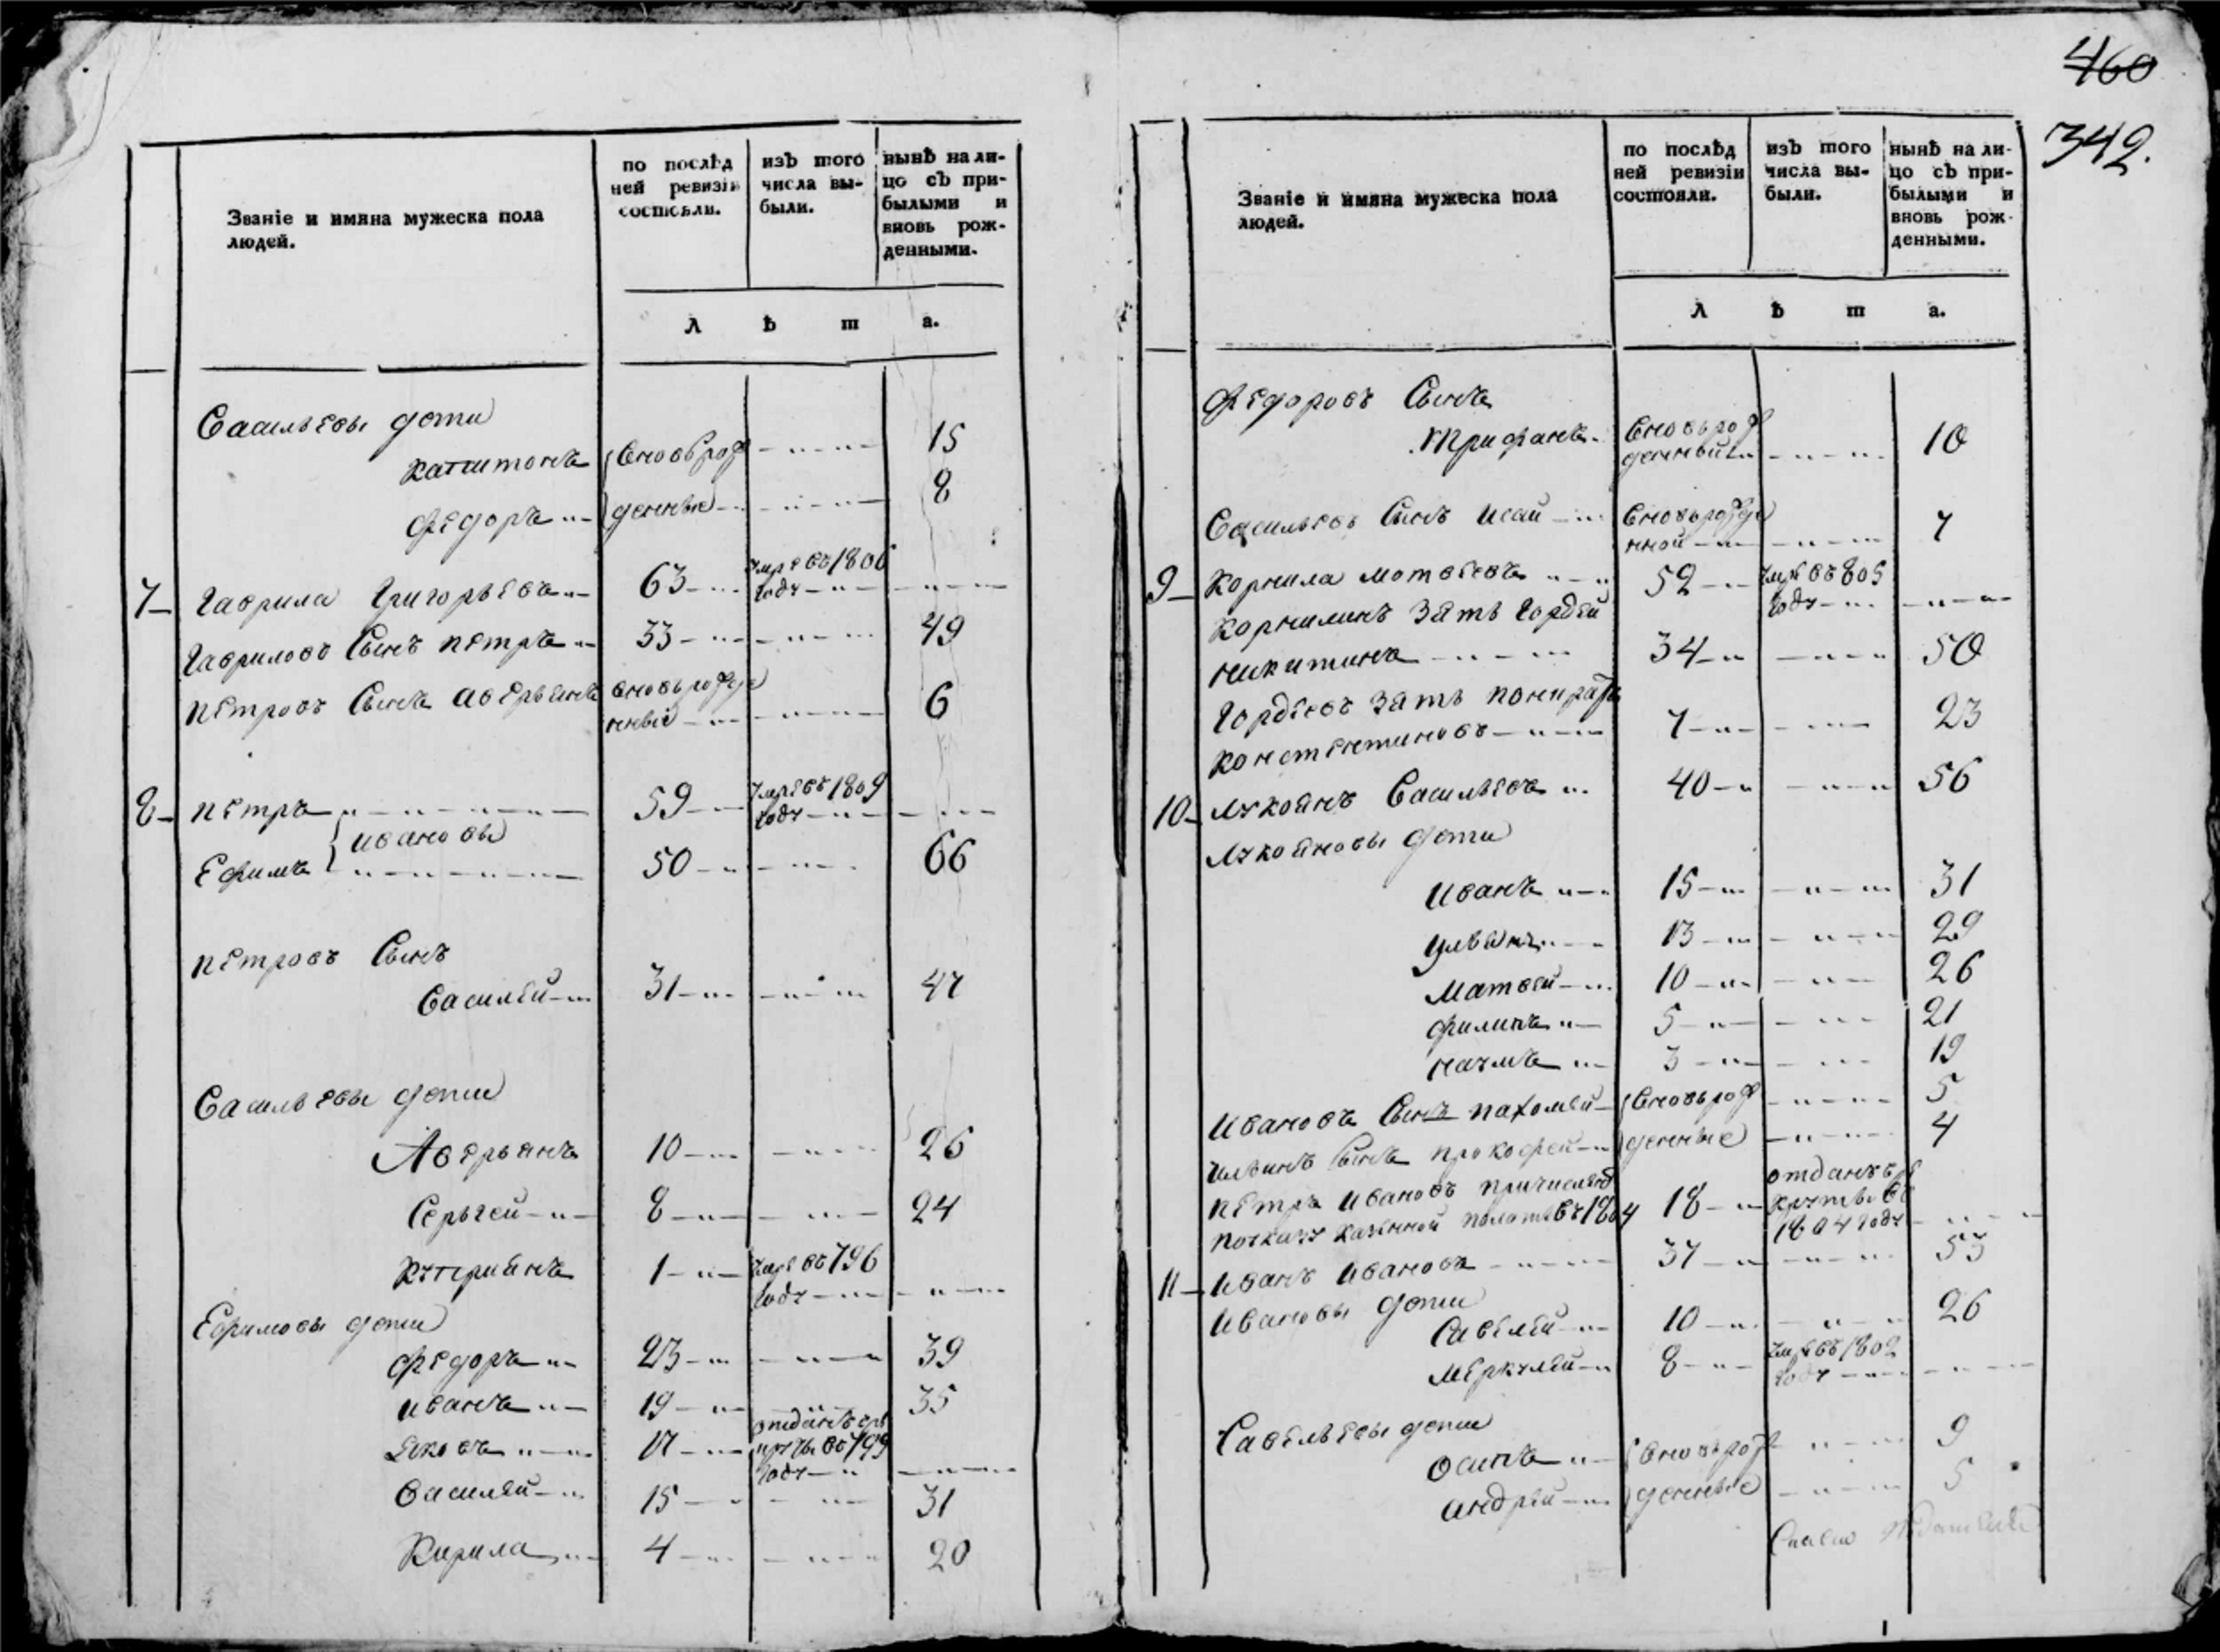 460
342.
Званіе и имяна мужеска пола
людей.
по послѣд
ней ревизіи
состояли.
изъ того
числа вы-
были.
нынѣ на ли-
цо съ при-
былыми и
вновь рож-
денными.
л ѣ т а.
Васильевы дети
Капитонъ вновьрож 15
Федоръ денные 8
7 Гаврила Григорьевъ 63 Умре въ 1806
году
Гавриловъ Сынъ петръ 33 49
петровъ Сынъ аверьянъ вновьрожде
нные 6
8 петръ 59 Умре въ 1809
году
ивановы
Ефимъ 50 66
петровъ Сынъ
Василей 31 47
Васильевы дети
Аверьянъ 10 26
Сергей 8 24
1 Умре въ 796
году
Ефимовы дети
Федоръ 23 39
иванъ 19 35
Яковъ 17 отданъ врѣ
въ 799
году
Василей 15 31
Кирила 4 20
Званіе и имяна мужеска пола
людей.
по послѣд
ней ревизіи
состояли.
изъ того
числа вы-
были.
нынѣ на ли-
цо съ при-
былыми и
вновь рож-
денными.
л ѣ т а.
Федоровъ Сынъ
Трифанъ вновьрож
денный 10
Васильевъ Сынъ исай вновьрожде
нной 7
9 Корнила мотвеевъ 52 Умре въ 805
году
Корнилинъ зять Гордей
никитинъ 34 50
Гордеевъ зять
констентиновъ 7 23
10 Лукоянъ Васильевъ 40 56
Лукояновы дети
иванъ 15 31
ульянъ 13 29
Матвей 10 26
филипъ 5 21
наумъ 3 19
ивановъ Сынъ пахомей вновьрож 5
Сынъ прокофей денные 4
петръ ивановъ причисленъ отданъ вре
поуказу казенной полаты въ 1804 18 круты въ
1804 году
11 иванъ ивановъ 37 53
ивановы дети
Савелей 10 26
меркулей 8 Умре въ 1802
году
Савельевы дети
осипъ вновьрож 9
андрей денные 5